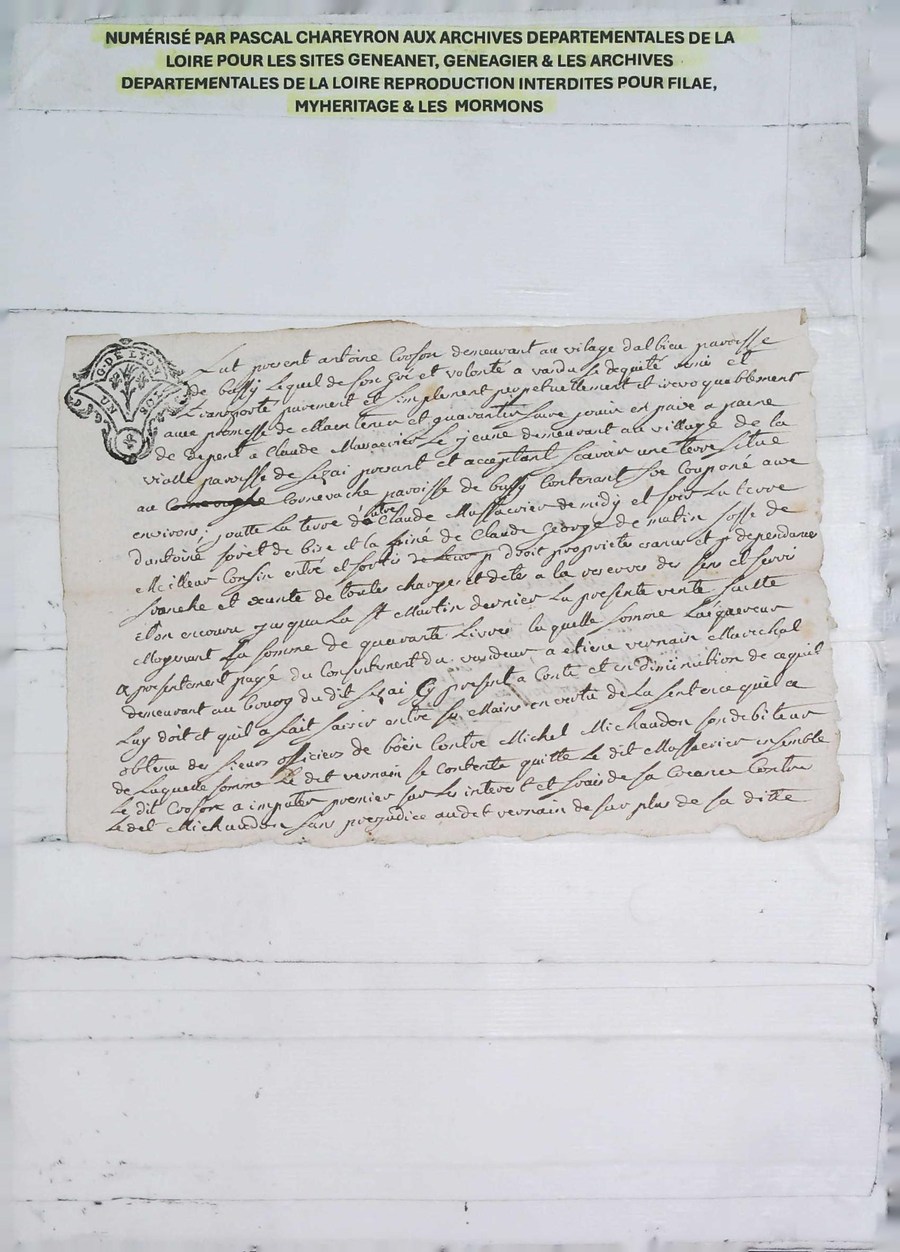 NUMÉRISÉ PAR PASCAL CHAREYRON AUX ARCHIVES DEPARTEMENTALES DE LA
LOIRE POUR LES SITES GENEANET, GENEAGIER & LES ARCHIVES
DEPARTEMENTALES DE LA LOIRE REPRODUCTION INTERDITES POUR FILAE,
MYHERITAGE & LES MORMONS
G. DE LYON
UN SOL
Fut present antoine Croson demeurant au vilage dalbieu paroisse
de bussy Lequel de son gré et volonté a vandu se dequité remi et
transporté purement et simplement perpetuellement et irevoquablement
avec promesse de Maintenir et guarantir faire jouir en paix a paine
de depent a Claude Massacrier Le jeune demeurant au village de la
vialle paroisse de Sezai present et acceptant Scavoir une terre Situé
au Cornevache paroisse de bussy Contenant Couponé avec
environs; joutte La terre d'autre Claude Massacrier de midy et soir La terre
d'antoine foret de bise et la de Claude george de matin fosse de
Meilleur Confin entré et sortis p. droit proprieté et p. dependance
franche et exante de toutes charges et detes a la reserves des Cens et Servi
et non encouru jusqua La St Martin dernier La presente vente faitte
Moyenant La somme de quarante Livres laquelle somme Laquereur
a presentement payé du Consentement du vandeur a etieu vernain Marechal
demeurant au bourg du dit Sezai Cy present a Conte et en diminution de ce quil
Luy doit et quil a fait saisir entre ses Mains en vertu de La sentence quil a
obtenu des sieurs officiers de böen Contre Michel Michaudon son debiteur
de Laquelle somme Le dit vernain se Contente quitte Le dit Massacrier ensemble
Le dit Croson a imputer premier sur Les interest et frais de sa Creance Contre
Le dit Michaudon sans prejudice audit vernain de sur plus de sa ditte